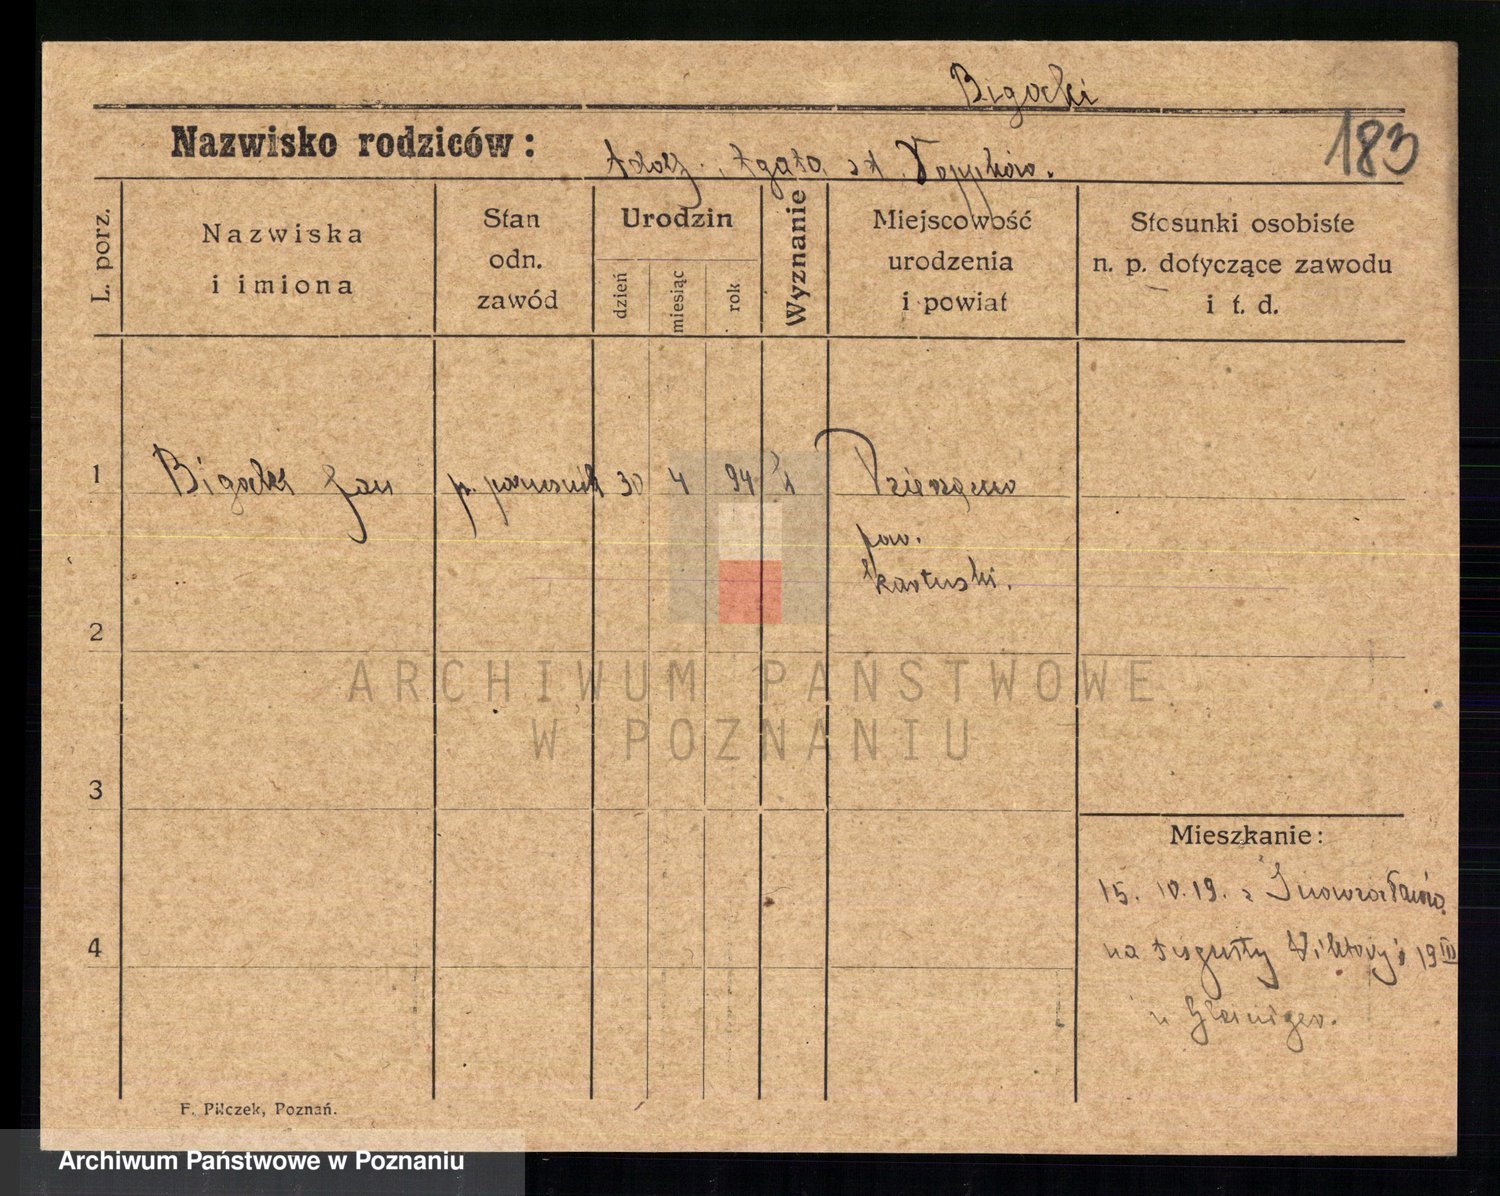 Bigocki
183
Nazwisko rodziców:
Agata
L. porz.
Nazwiska
i imiona
Stan
odn.
zawód
Urodzin
dzień
miesiąc
rok
Wyznanie
Miejscowość
urodzenia
i powiat
Stosunki osobiste
n. p. dotyczące zawodu
i t. d.
1 Bigocki Jan 30 4 94
pow.
kartuski.
2
ARCHIWUM PAŃSTWOWE
W POZNANIU
3
Mieszkanie:
15. 10. 19. z Inowrocławia
4
na Augusty Viktoryi 19 III
u
F. Pilczek, Poznań.
Archiwum Państwowe w Poznaniu